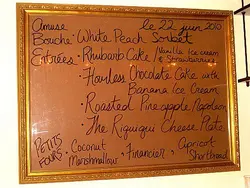 Amuse Bouche: White Peach Sorbet
le 22 juin 2010
Entrées: • Rhubarb Cake / Vanilla Ice cream & Strawberries
• Flourless Chocolate Cake with
Banana Ice Cream
• Roasted Pineapple Napoleon
• The Riquiqui Cheese Plate
PETITS FOURS: Coconut Marshmallows, Financier, Apricot Shortbread